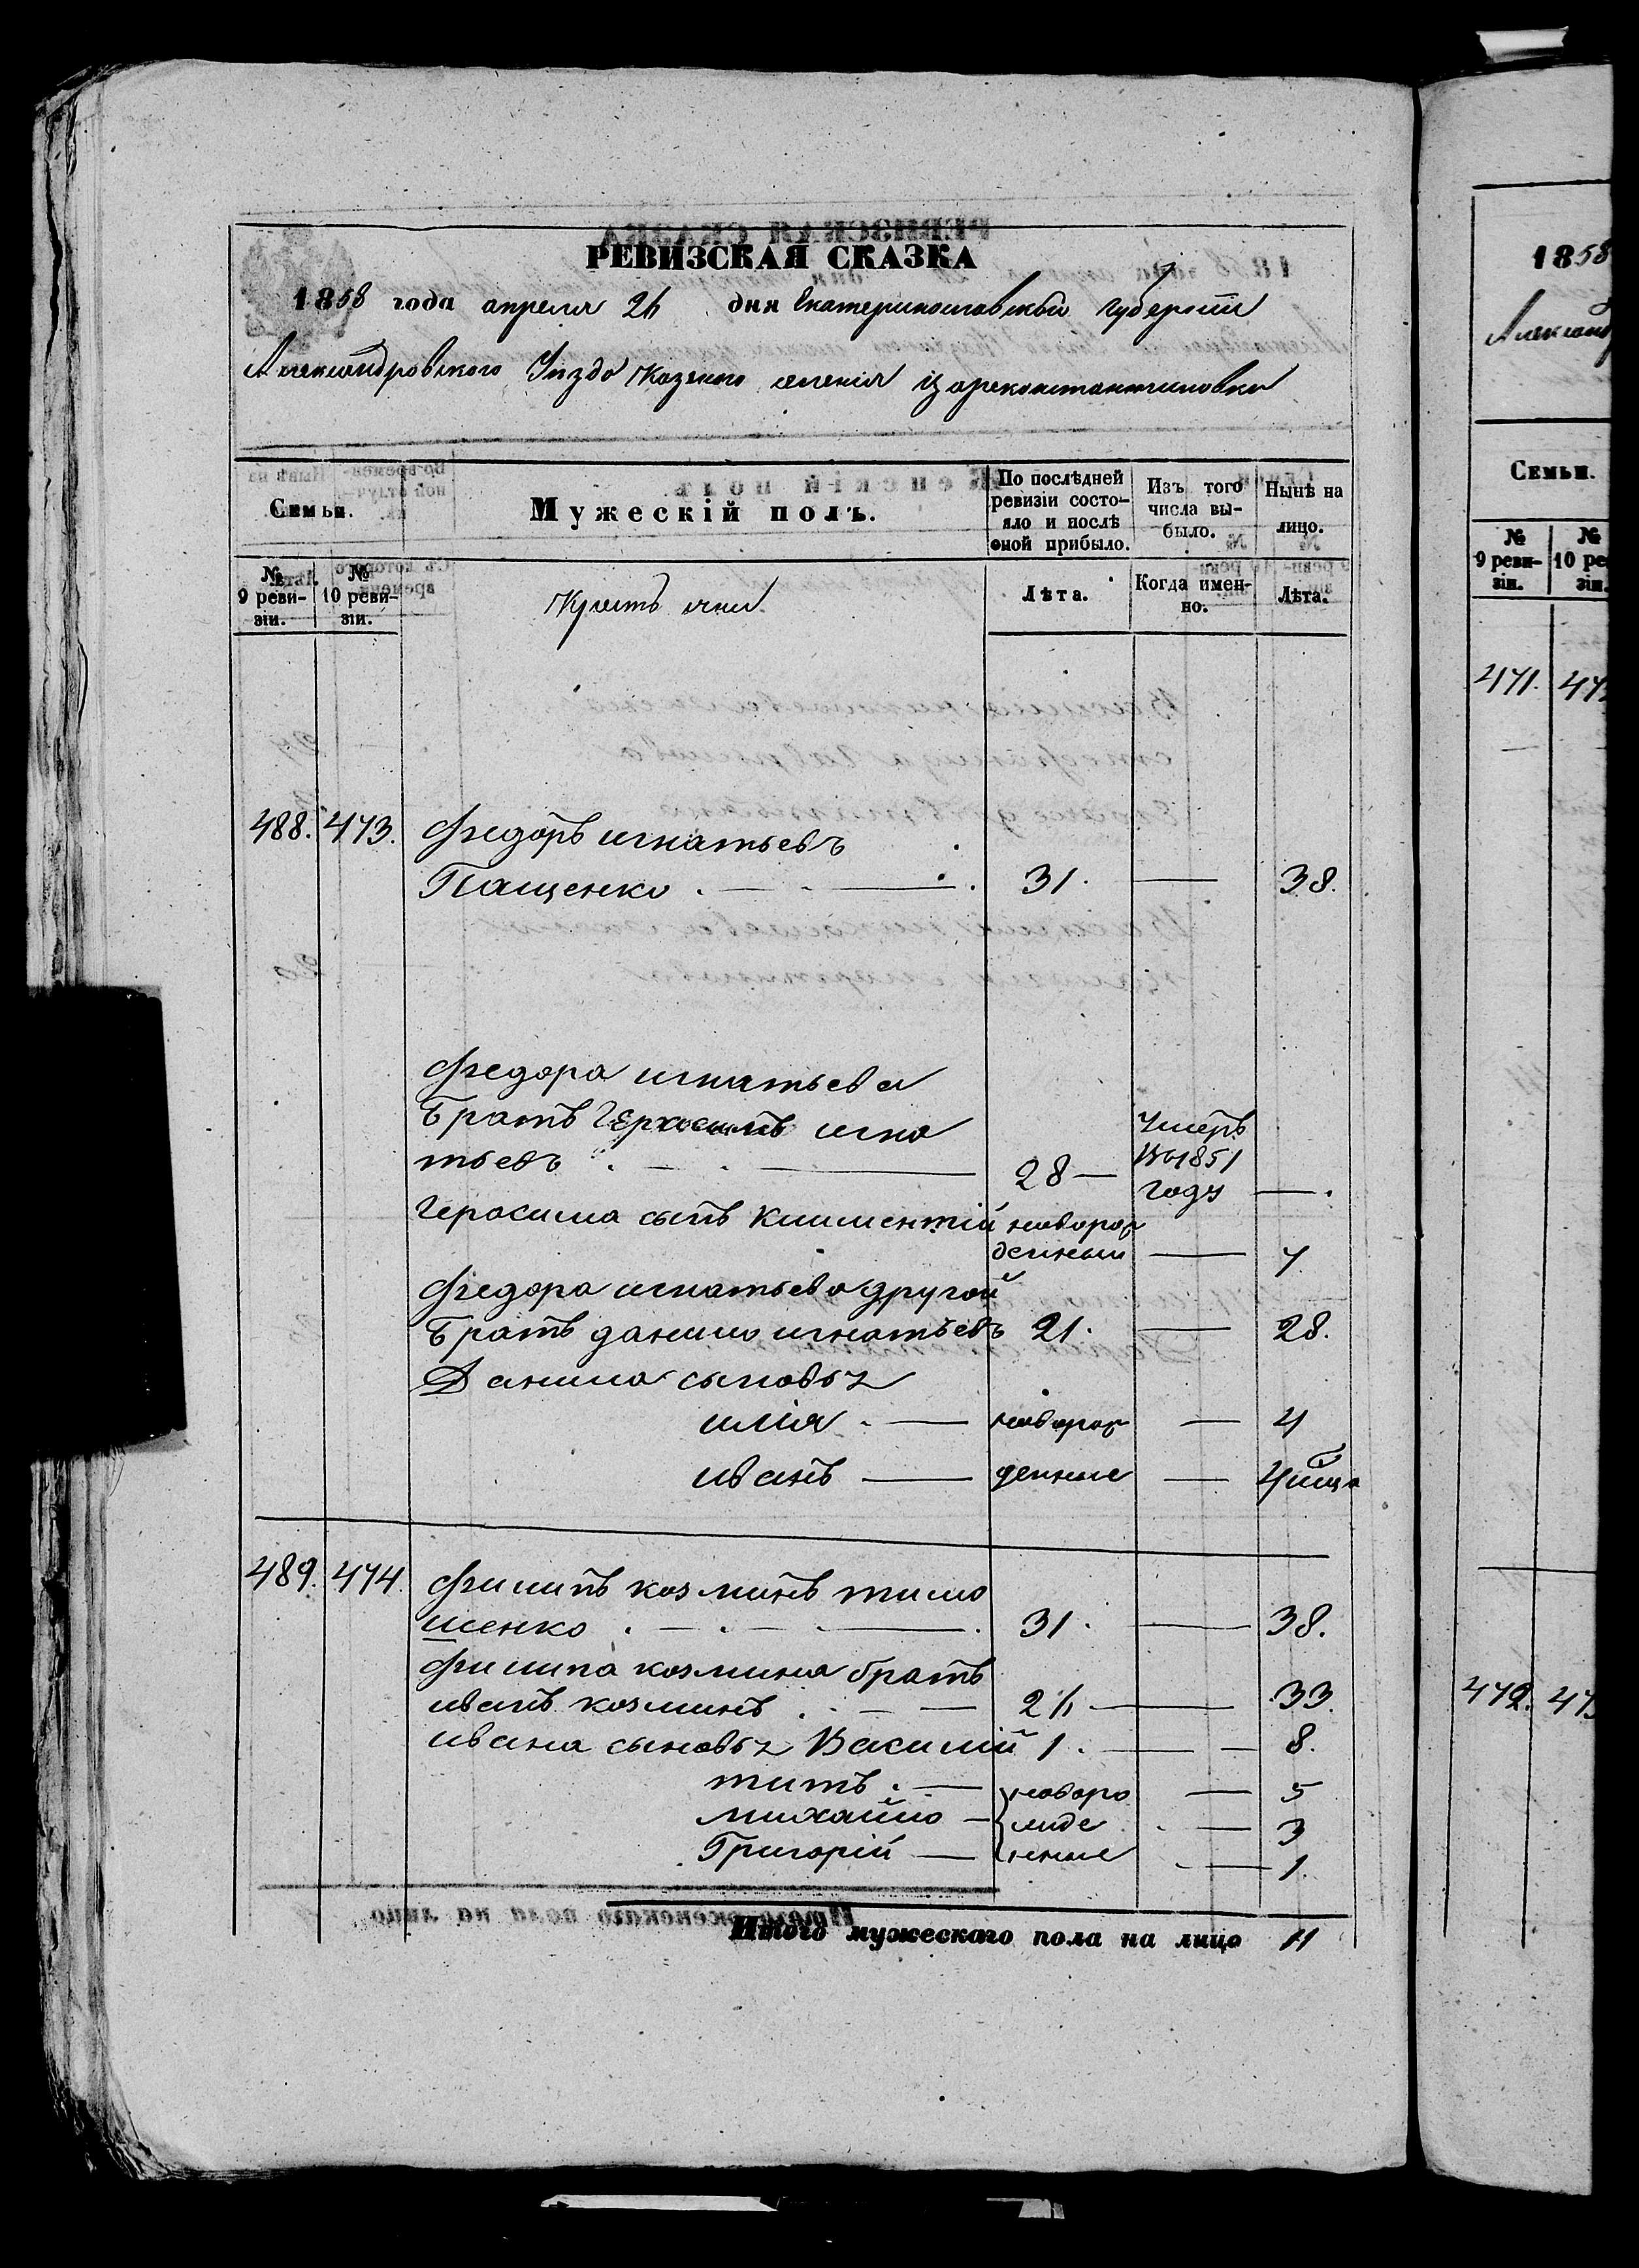 РЕВИЗСКАЯ СКАЗКА
1858 года апреля 26 дня Екатеринославской губернiи
Александровского Уѣзда Казеного селенiя Цареконстантиновки
Семьи.
Мужескiй полъ.
По послѣдней ревизiи состояло и послѣ оной прибыло.
Изъ того числа выбыло.
Нынѣ на лицо.
№ 9 ревизiи.
№ 10 ревизiи.
Крестьяне
Лѣта.
Когда именно.
Лѣта.
488. 473. Федоръ игнатьевъ
Пащенко . — 31. — 38.
Федора игнатьева
братъ Герасимъ игна
тьевъ . — 28 — Умеръ
въ 1851
году —.
Герасима сынъ Климентiй новорож
денный — 7
Федора игнатьева другой
братъ данило игнатьевъ 21. — 28.
Данила сыновья
илiя . — новорож — 4
иванъ — денные — 4 мца
489. 474. Филипъ козминъ тимо
шенко . — 31. — 38.
Филипа козмина братъ
иванъ козминъ . — 26 — 33.
ивана сыновья Василiй 1. — 8.
титъ . — новоро — 5
михайло — жде — 3
Григорiй — нные — 1.
Итого мужескаго пола на лицо 11
1858
Александр
Семьи.
№ 9 ревизiи.
№ 10 ре
зiи.
471. 47
472. 47